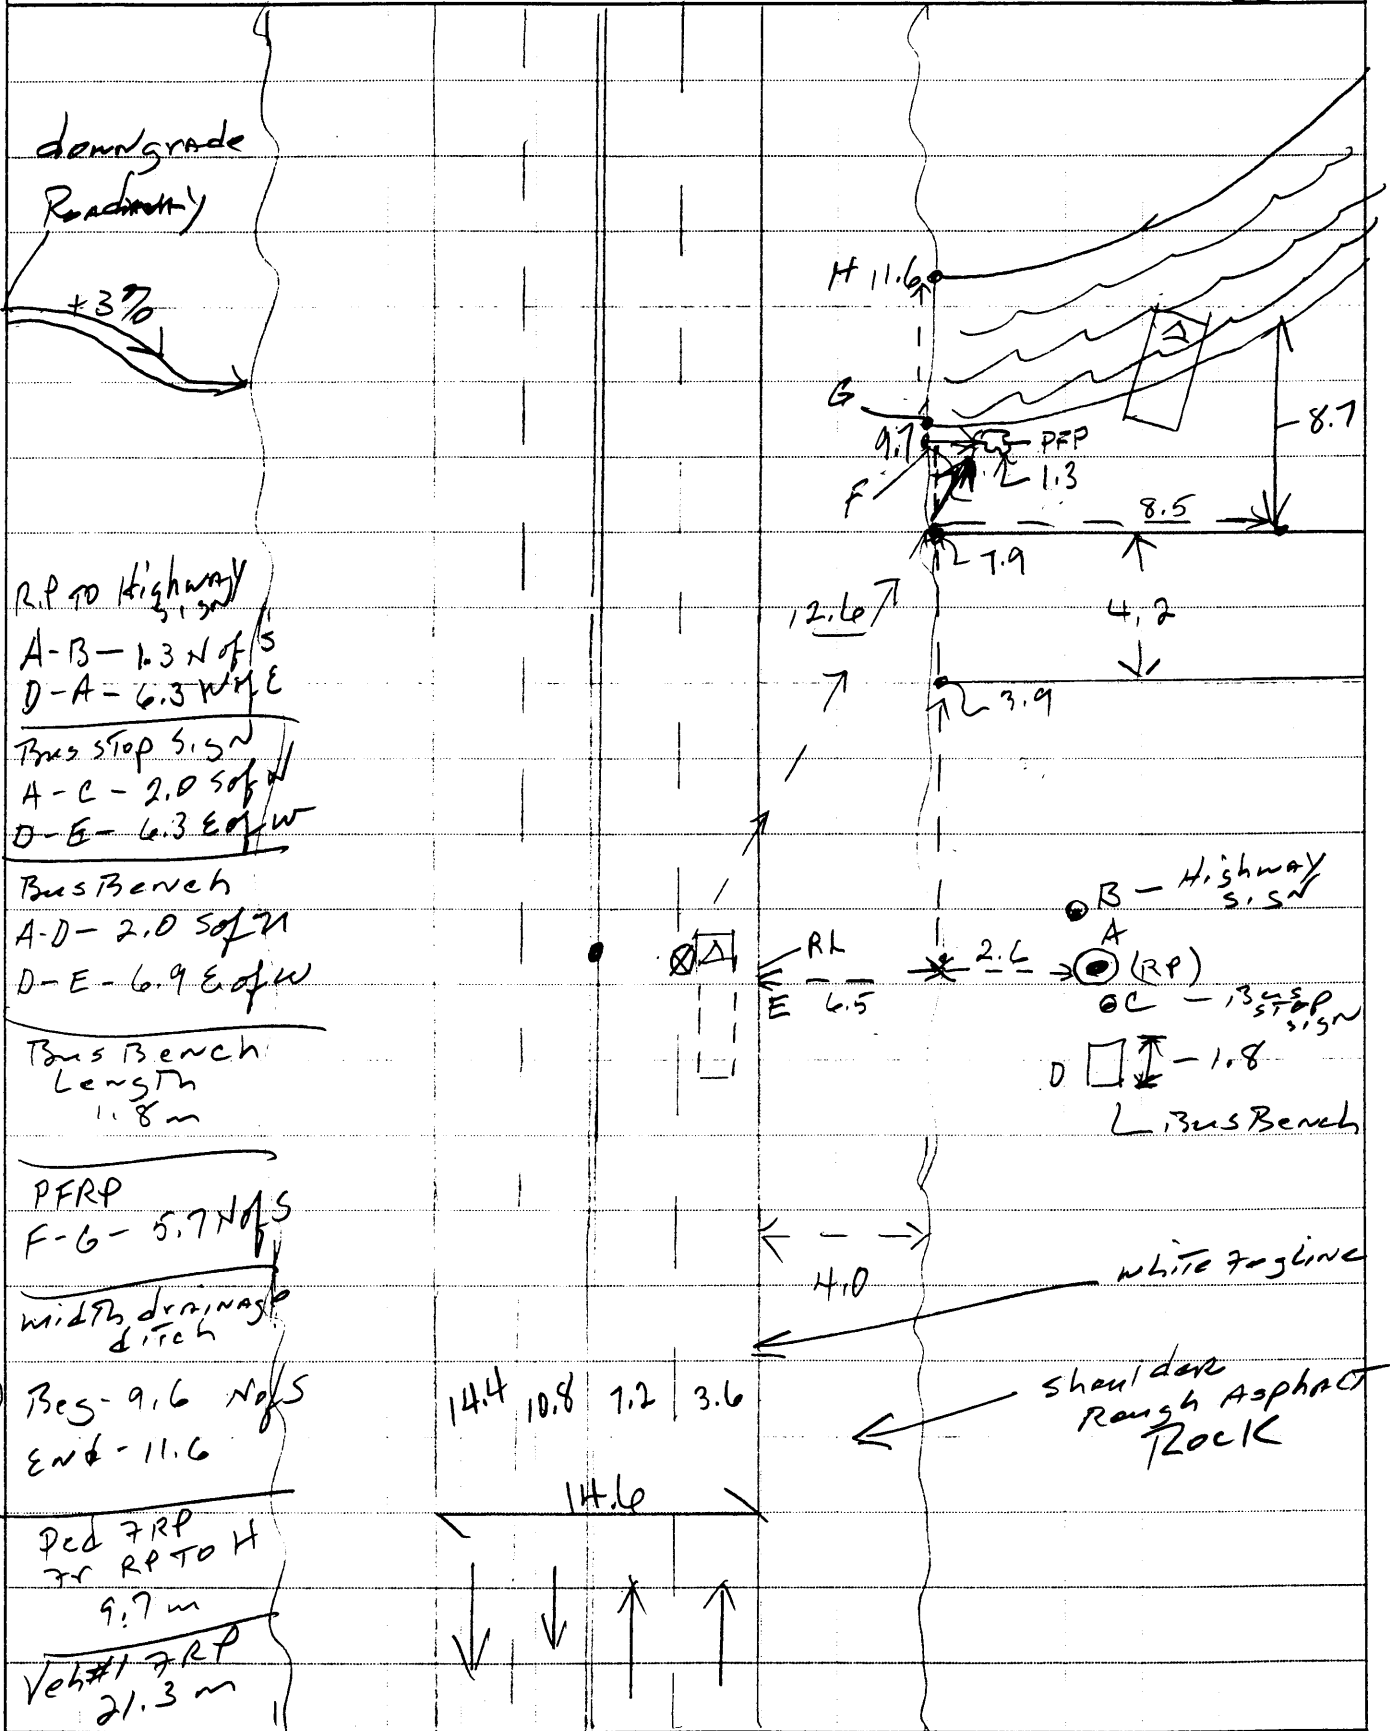 downgrade
Roadway
+3%
R.P TO Highway
sign
A-B- 1.3 N of S
D-A- 6.3 W of E
Bus stop sign
A-C- 2.0 S of N
D-E- 6.3 E of W
Bus Bench
A-D- 2.0 S of N
D-E- 6.9 E of W
Bus Bench
Length
1.8 m
PFRP
F-G- 5.7 N of S
width drainage
ditch
Beg- 9.6 N of S
End- 11.6
Ped FRP
fr RP TO H
9.7 m
Veh#1 FRP
21.3 m
H 11.6
G
9.7
PFP
1.3
F
8.7
8.5
7.9
12.6
4.2
3.9
B - Highway
sign
A
(RP)
RL
2.6
E 6.5
C - Bus
stop
sign
D
1.8
Bus Bench
4.0
white fogline
shoulder
Rough Asphalt
Rock
14.4 10.8 7.2 3.6
14.6